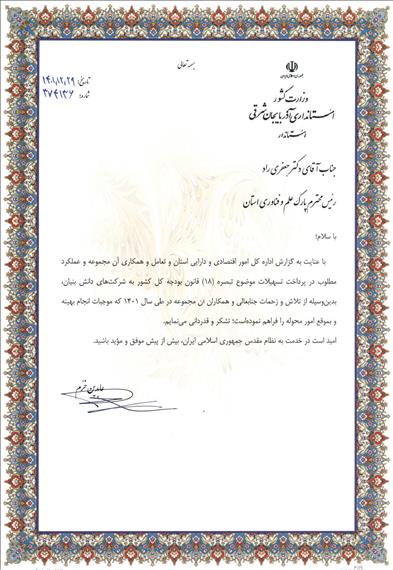 بسمه تعالی
تاریخ: ۱۴۰۱,۱۲,۲۹
شماره: ۳۷۴۱۳۶
جمهوری اسلامی ایران
وزارت کشور
استانداری آذربایجان شرقی
استاندار
جناب آقای دکتر جعفری راد
رئیس محترم پارک علم و فناوری استان
با سلام؛
با عنایت به گزارش اداره کل امور اقتصادی و دارایی استان و تعامل و همکاری آن مجموعه و عملکرد
مطلوب در پرداخت تسهیلات موضوع تبصره (۱۸) قانون بودجه کل کشور به شرکت‌های دانش بنیان،
بدین‌وسیله از تلاش و زحمات جنابعالی و همکاران آن مجموعه در طی سال ۱۴۰۱ که موجبات انجام بهینه
و بموقع امور محوله را فراهم نموده‌است؛ تشکر و قدردانی می‌نمایم.
امید است در خدمت به نظام مقدس جمهوری اسلامی ایران، بیش از پیش موفق و مؤید باشید.
عابدین خرم